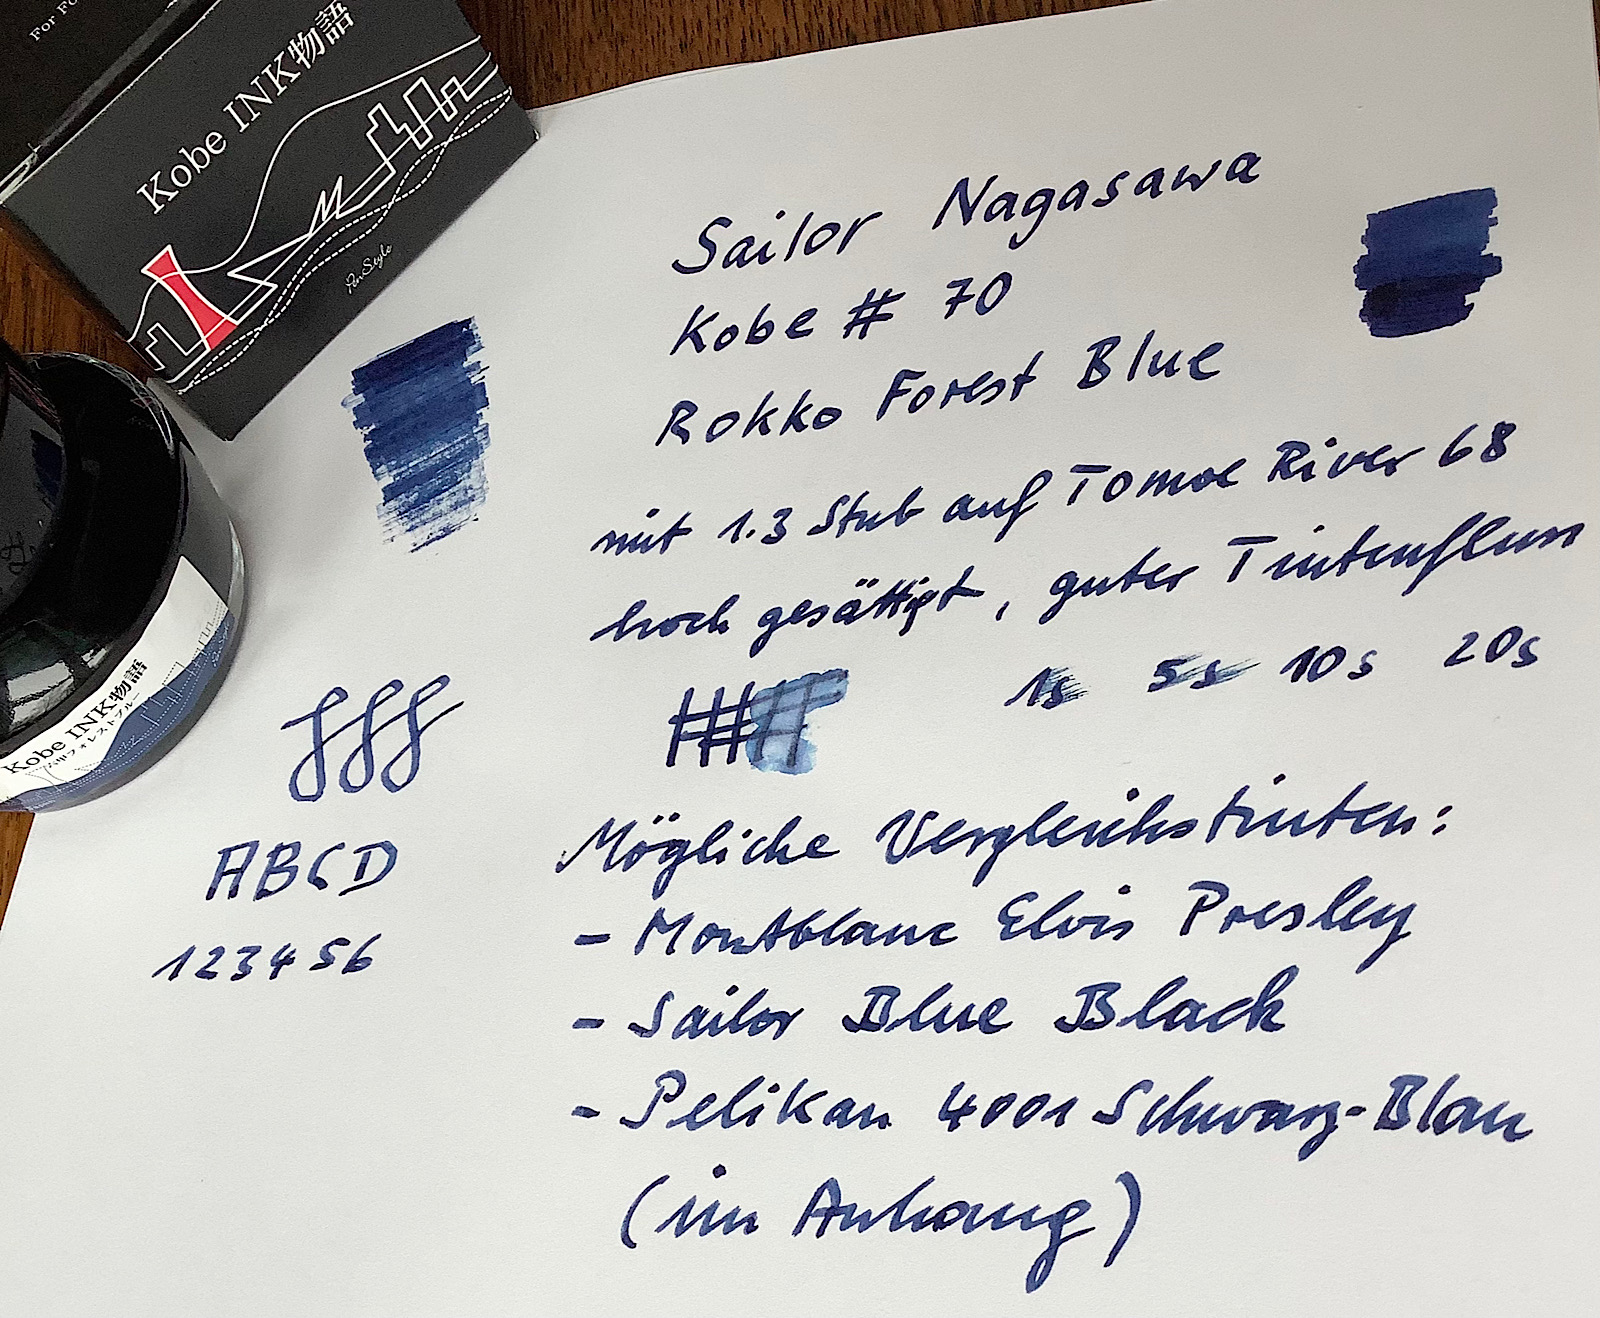 For Fo
Kobe INK物語
PenStyle
Kobe INK物語
六甲フォレストブルー
Sailor Nagasawa
Kobe # 70
Rokko Forest Blue
mit 1.3 Stub auf Tomoe River 68
hoch gesättigt, guter Tintenfluss
1s 5s 10s 20s
ABCD
123456
Mögliche Vergleichstinten:
- Montblanc Elvis Presley
- Sailor Blue Black
- Pelikan 4001 Schwarz-Blau
(im Anhang)